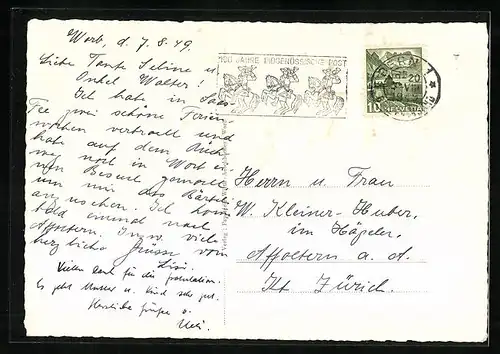 Worb, d. 7.8.49.
Liebe Tante Seline u
Onkel Walter!
Ich habe in Saas-
Fee zwei schöne Ferien
wochen verbracht und
habe auf dem Rück
weg noch in Worb ei
nen Besuch gemacht
um mir das Bärbeli
anzusehen. Ich kom
bald einmal nach
Affoltern. Inzw. viele
herzliche Grüsse von
Vielen Dank für die Gratulation.
Es geht Mutter u. Kind sehr gut.
Herzliche Grüsse v.
Ueli.
100 JAHRE EIDGENÖSSISCHE POST
BERN 1
20
10
HELVETIA
Herrn u. Frau
W. Kleiner-Huber,
im
Affoltern a. A.
Kt Zürich.